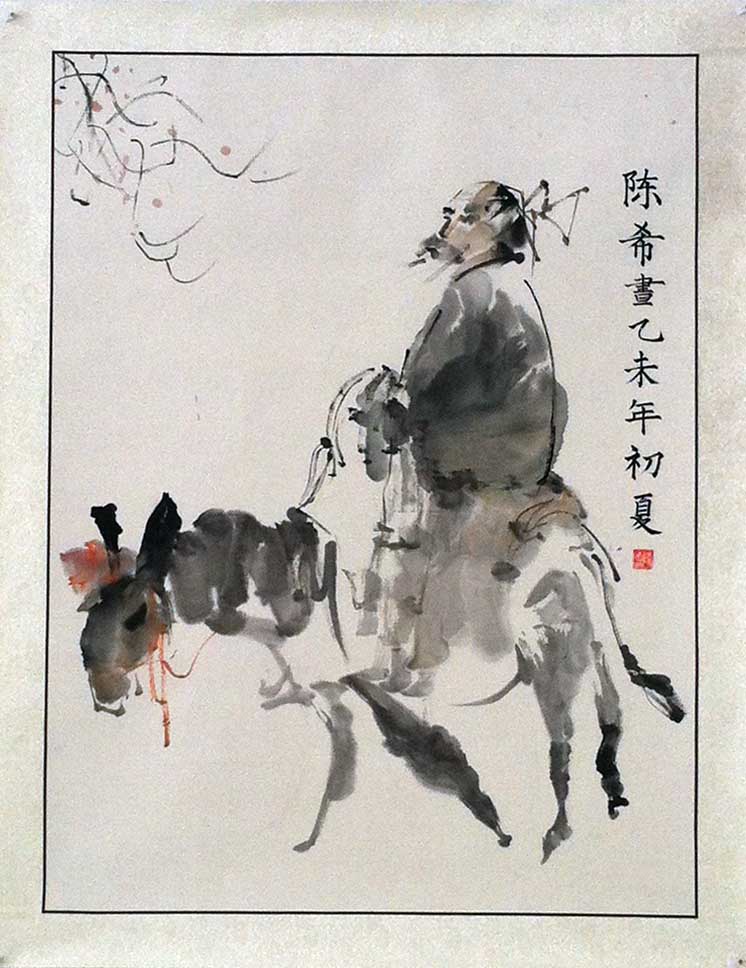 陈希畫乙未年初夏